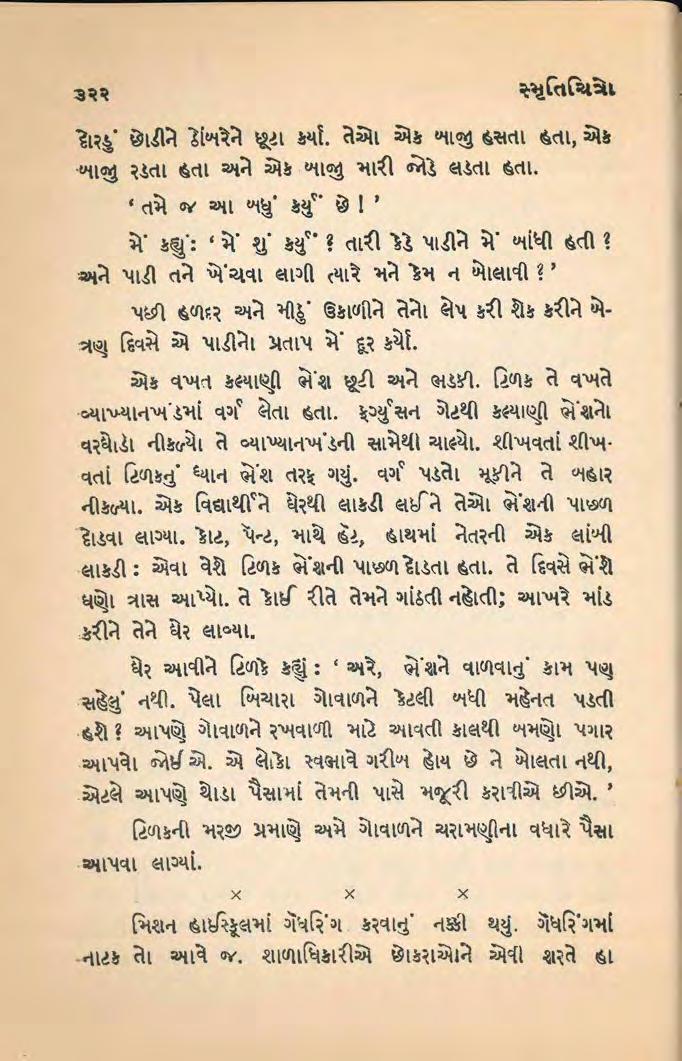 ૩૨૨ સ્મૃતિચિત્રો
દોરડું છોડીને ઠોંબરેને છૂટા કર્યા. તેઓ એક બાજી હસતા હતા, એક
બાજી રડતા હતા અને એક બાજી મારી જોડે લડતા હતા.
‘ તમે જ આ બધું કર્યું છે ! ’
મેં કહ્યું : ‘ મેં શું કર્યું ? તારી કેડે પાડીને મેં બાંધી હતી ?
અને પાડી તને ખેંચવા લાગી ત્યારે મને કેમ ન બોલાવી ? ’
પછી હળદર અને મીઠું ઉકાળીને તેનો લેપ કરી શેક કરીને બે-
ત્રણ દિવસે એ પાડીનો પ્રતાપ મેં દૂર કર્યો.
એક વખત કલ્યાણી ભેંશ છૂટી અને ભડકી. ટિળક તે વખતે
વ્યાખ્યાનખંડમાં વર્ગ લેતા હતા. ફર્ગ્યુસન ગેટથી કલ્યાણી ભેંશનો
વરઘોડો નીકળ્યો તે વ્યાખ્યાનખંડની સામેથી ચાલ્યો. શીખવતાં શીખ-
વતાં ટિળકનું ધ્યાન ભેંશ તરફ ગયું. વર્ગ પડતો મૂકીને તે બહાર
નીકળ્યા. એક વિદ્યાર્થીને ઘેરથી લાકડી લઈને તેઓ ભેંશની પાછળ
દોડવા લાગ્યા. કોટ, પૅન્ટ, માથે હૅટ, હાથમાં નેતરની એક લાંબી
લાકડી : એવા વેશે ટિળક ભેંશની પાછળ દોડતા હતા. તે દિવસે ભેંશે
ઘણો ત્રાસ આપ્યો. તે કોઈ રીતે તેમને ગાંઠતી નહોતી; આખરે માંડ
કરીને તેને ઘેર લાવ્યા.
ઘેર આવીને ટિળકે કહ્યું : ‘ અરે, ભેંશને વાળવાનું કામ પણ
સહેલું નથી. પેલા બિચારા ગોવાળને કેટલી બધી મહેનત પડતી
હશે ? આપણે ગોવાળને રખવાળી માટે આવતી કાલથી બમણો પગાર
આપવો જોઈએ. એ લોકો સ્વભાવે ગરીબ હોય છે ને બોલતા નથી,
એટલે આપણે થોડા પૈસામાં તેમની પાસે મજૂરી કરાવીએ છીએ. ’
ટિળકની મરજી પ્રમાણે અમે ગોવાળને ચરામણીના વધારે પૈસા
આપવા લાગ્યાં.
× × ×
મિશન હાઈસ્કૂલમાં ગૅધરિંગ કરવાનું નક્કી થયું. ગૅધરિંગમાં
નાટક તો આવે જ. શાળાધિકારીએ છોકરાઓને એવી શરતે હા